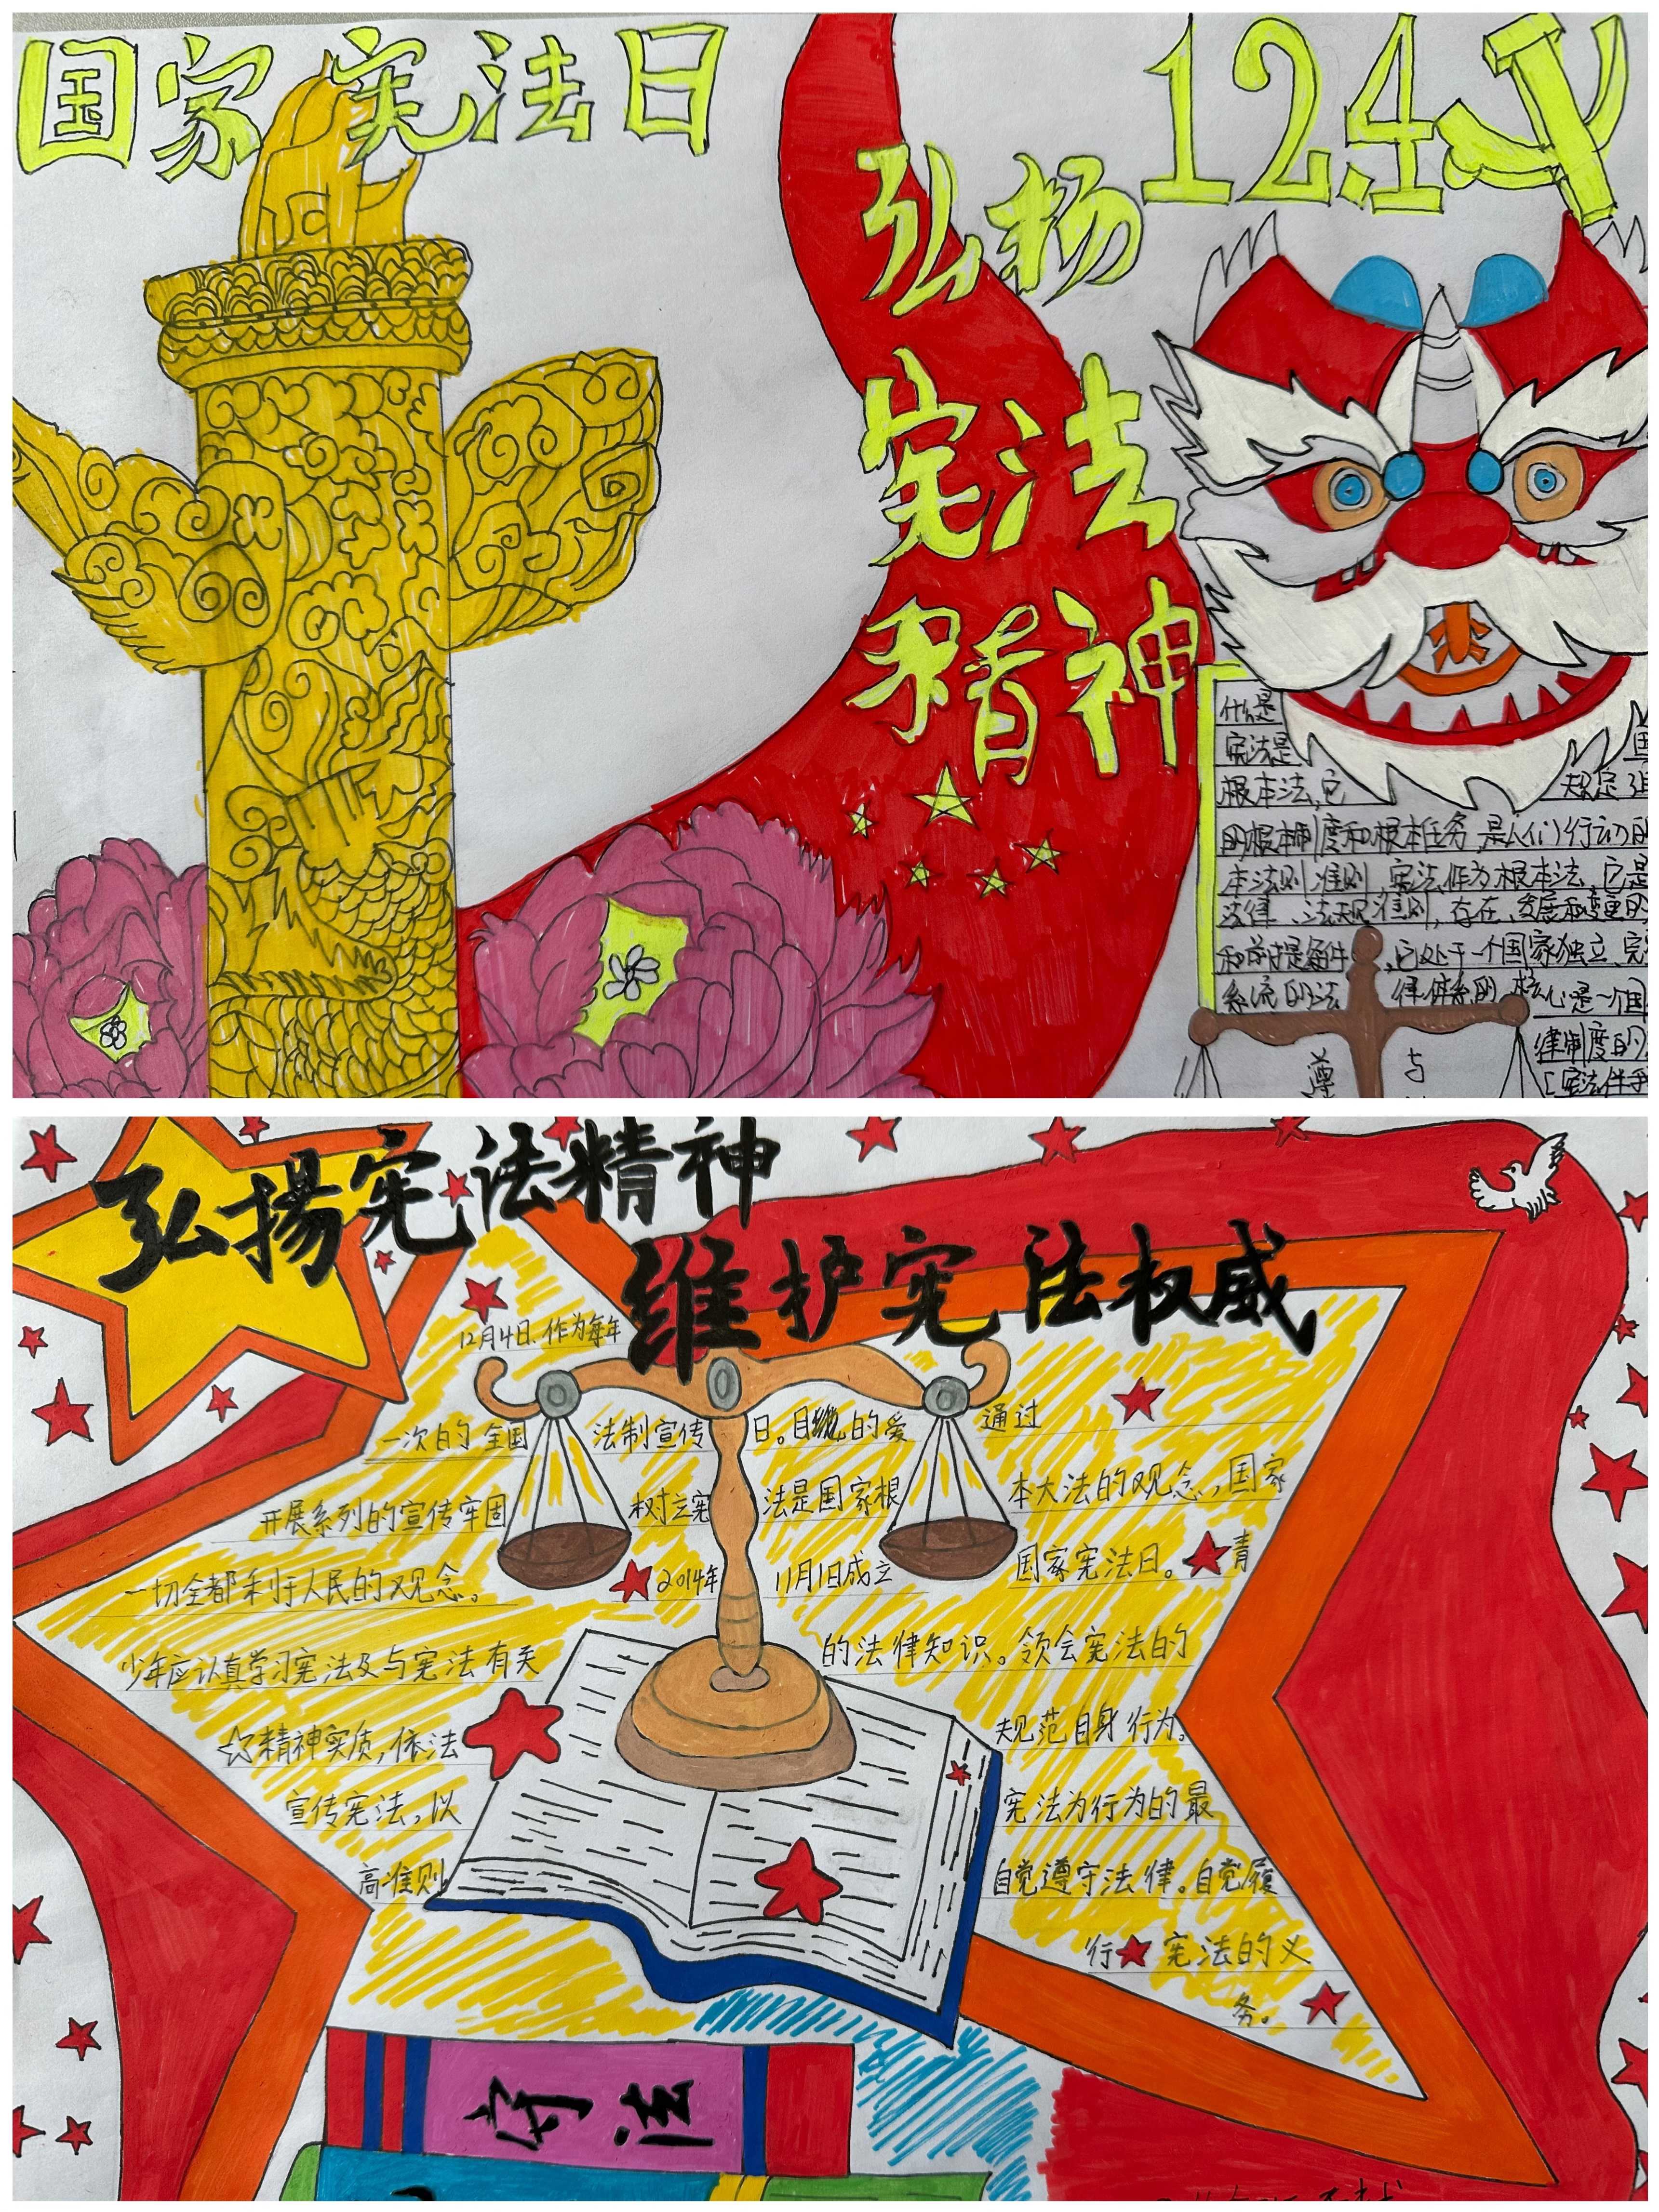 国家宪法日
12.4
弘扬
宪法
精神
什么是
宪法是
根本法,它 规定
的根本制度和根本任务,是人们行动的
本法则准则,宪法作为根本法,它是
法律、法规准则,存在、发展和变更的
和前提条件,它处于一个国家独立、完
系流的法律体系的核心,是一个国
律制度的
遵与
弘揚宪法精神
维护宪法权威
12月4日.作为每年
一次的全国法制宣传日。目的爱通过
开展系列的宣传牢固树立宪法是国家根本大法的观念,国家
一切全都利于人民的观念。2014年11月1日成立国家宪法日。青
少年应认真学习宪法及与宪法有关的法律知识。领会宪法的
精神实质,依法规范自身行为。
宣传宪法,以宪法为行为的最
高准则自觉遵守法律。自觉履
行宪法的义
务。
守法